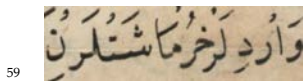 59 وَاُردِلَرْ خُرمَا شَتُلَرنْ